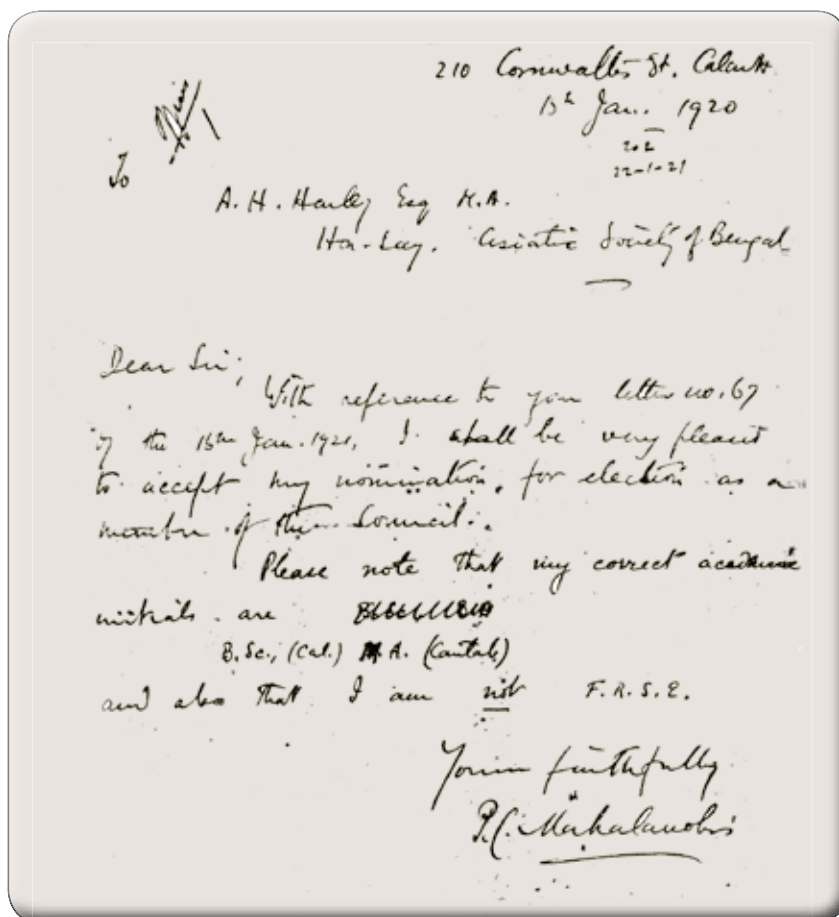 210 Cornwallis St. Calcutta
Jan. 1920
202
22-1-21
To
A. H. Harley Esq M.A.
Hon. Secy. Asiatic Society of Bengal
Dear Sir,
With reference to your letter no. 67
of the 15th Jan. 1921, I shall be very pleased
to accept my nomination, for election as a
member of the Council.
Please note that my correct academic
initials are
B.Sc., (Cal.) M.A. (Cantab)
and also that I am not F.R.S.E.
Yours faithfully
P.C. Mahalanobis